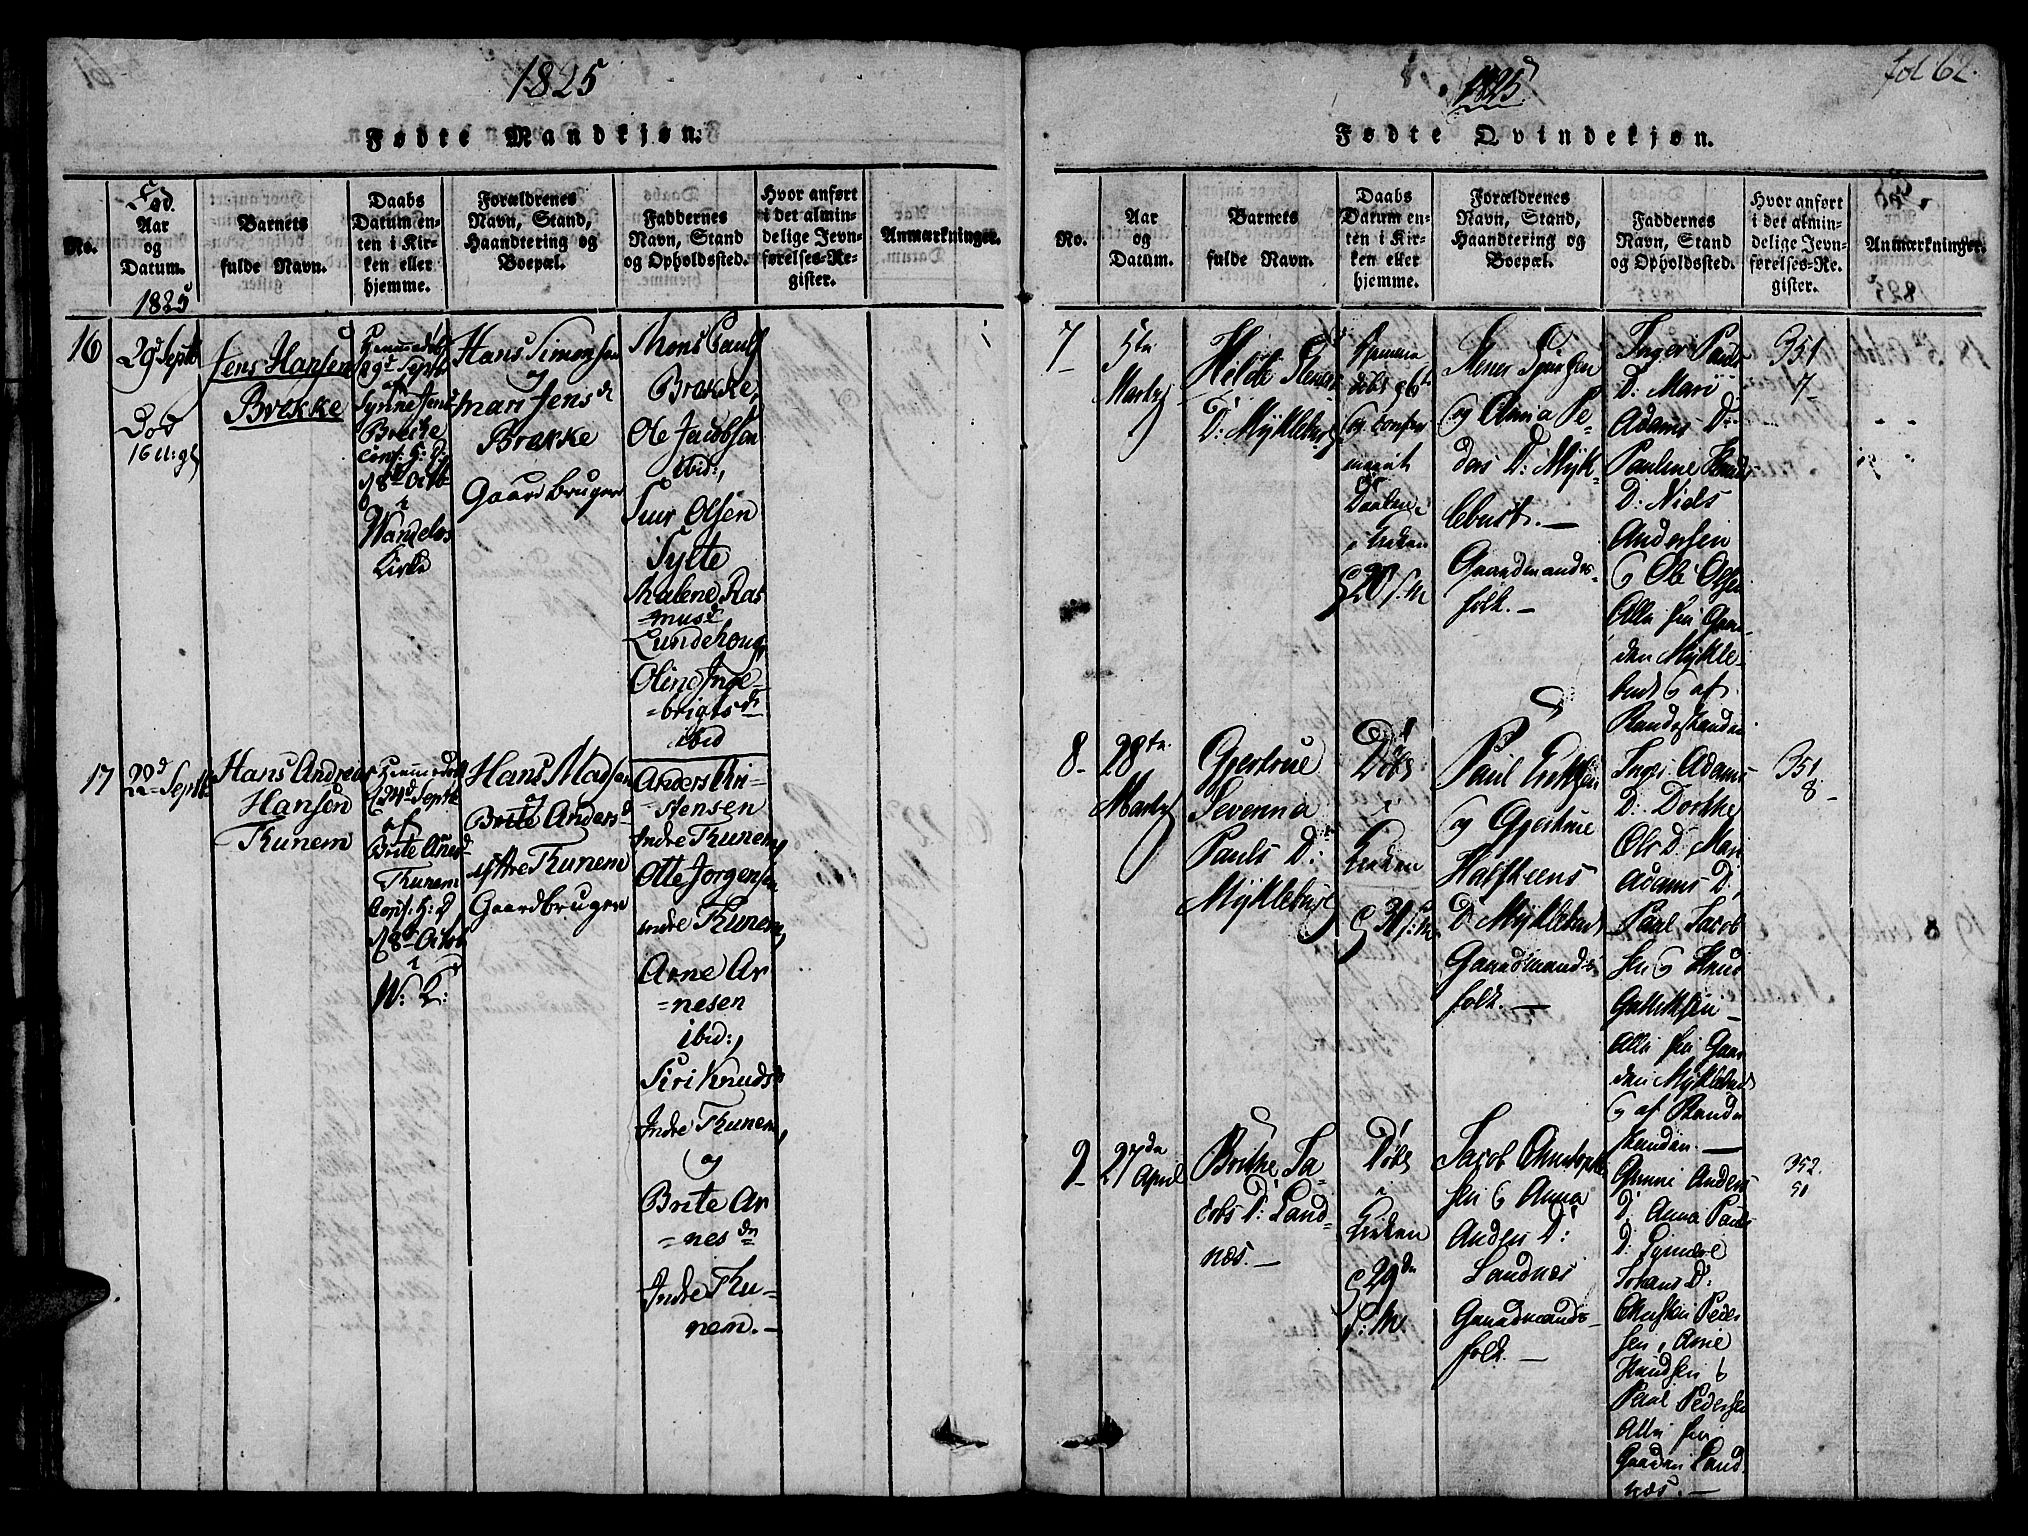 1825
Fødte Mandkjøn.
No.
Fød.
Aar
og
Datum.
1825
Barnets
fulde Navn.
Daabs
Datum en-
ten i Kir-
ken eller
hjemme.
Forældrenes
Navn, Stand,
Haandtering og
Boepæl.
Faddernes
Navn, Stand
og Opholdssted.
Hvor anført
i det almin-
delige Jevn-
førelses-Re-
gister.
Anmærkninger.
16
29d Septb
Død
Jens Hansen
Brøkke
Hiemmedøbt
29d Septb
af
Synne Jens
Brække
Conf: H: D:
d 8de Octb
i
Wandelvs
Kirke
Hans Simonsen
og
Mari Jensd
Brøkke
Gaardbruger
Mons Pauls
Brøkke,
Ole Jacobsen
ibid:,
Siur Olsen
Sylte
Malene Ras
=musd
Lundehoug,
Oline Inge=
=brigtsdr
ibid
17
22d Septb
Hans Andreas
Hansen
Thunem
Hiemmedøbt
24d Septb
af
Brite Anesd
Thunem
Conf. H: D
d 8de Octob
i
W: K:
Hans Madsen
og
Brite Andersd
ystre Thunem
Gaardbruger
Anders Chri=
=stensen
Indre Thunem,
Otte Jørgensen
indre Thunem,
Arne Ar
=nesen
ibid:,
Siri Knudsd
Indre Thunem,
og
Brite Ar
=nesdr
Indre Thu=
nem.-
1825
fol 62.
Fødte Qvindekjøn.
No.
Aar
og
Datum.
Barnets
fulde Navn.
Daabs
Datum en-
ten i Kir-
ken eller
hjemme.
Forældrenes
Navn, Stand,
Haandtering og
Boepæl.
Faddernes
Navn, Stand
og Opholdssted.
Hvor anført
i det almin-
delige Jevn-
førelses-Re-
gister.
Anmærkninger.
7
5te
Marty
Hilde Stens
D: Myklebust
Hjemme
døbt
og Confir
meret
Daaben
i Kirken
d 20 s: m
og Anna Pe-
ders D: Myk-
lebust.-
Gaardmands-
folk.-
Inger Pauls
D: Mari
Adams D:
Pauline Knuds
D: Niels
Andersen
og Ole Olsen
Alle fra Gaar-
den Mykle-
bust og af
Bondestanden
351
7
8
28te
Marty
Gjertrue
Severina
Pauls D:
Myklebust
Døbt
i
Kirken
d 31 s: m
Paul Eriksen
og Gjertrue
Halsteens
D Myklebust
Gaardmands
folk.-
Inger Adams
D: Dorthe
Ols D: Mari
Adams D:
Paul Jacob
sen og Knud
Alle fra Gaar
den Myklebust
og af Bonde
standen.-
351
8
9
27de
April
Brithe Ja
cobs D: Land=
næs.-
Døbt
i
Kirken
d 29de
s: m
Jacob Christoph
sen og Anna
Anders D:
Landnæs
Gaardmands-
folk.-
Gunni Anders
D: Anna Pauls
D:
Johans D:
Christen Peder
sen, Arne
Knudsen og
Paul Pedersen
Alle fra
Gaarden Land
næs.-
352.